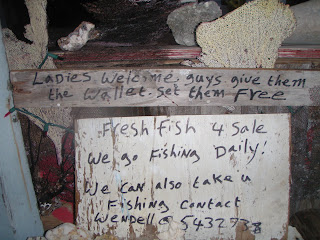 Ladies Welcome guys give them
the Wallet. Set them Free
Fresh fish 4 Sale
We go Fishing Daily!
We can also take u
Fishing Contact
Wendell @ 5432738